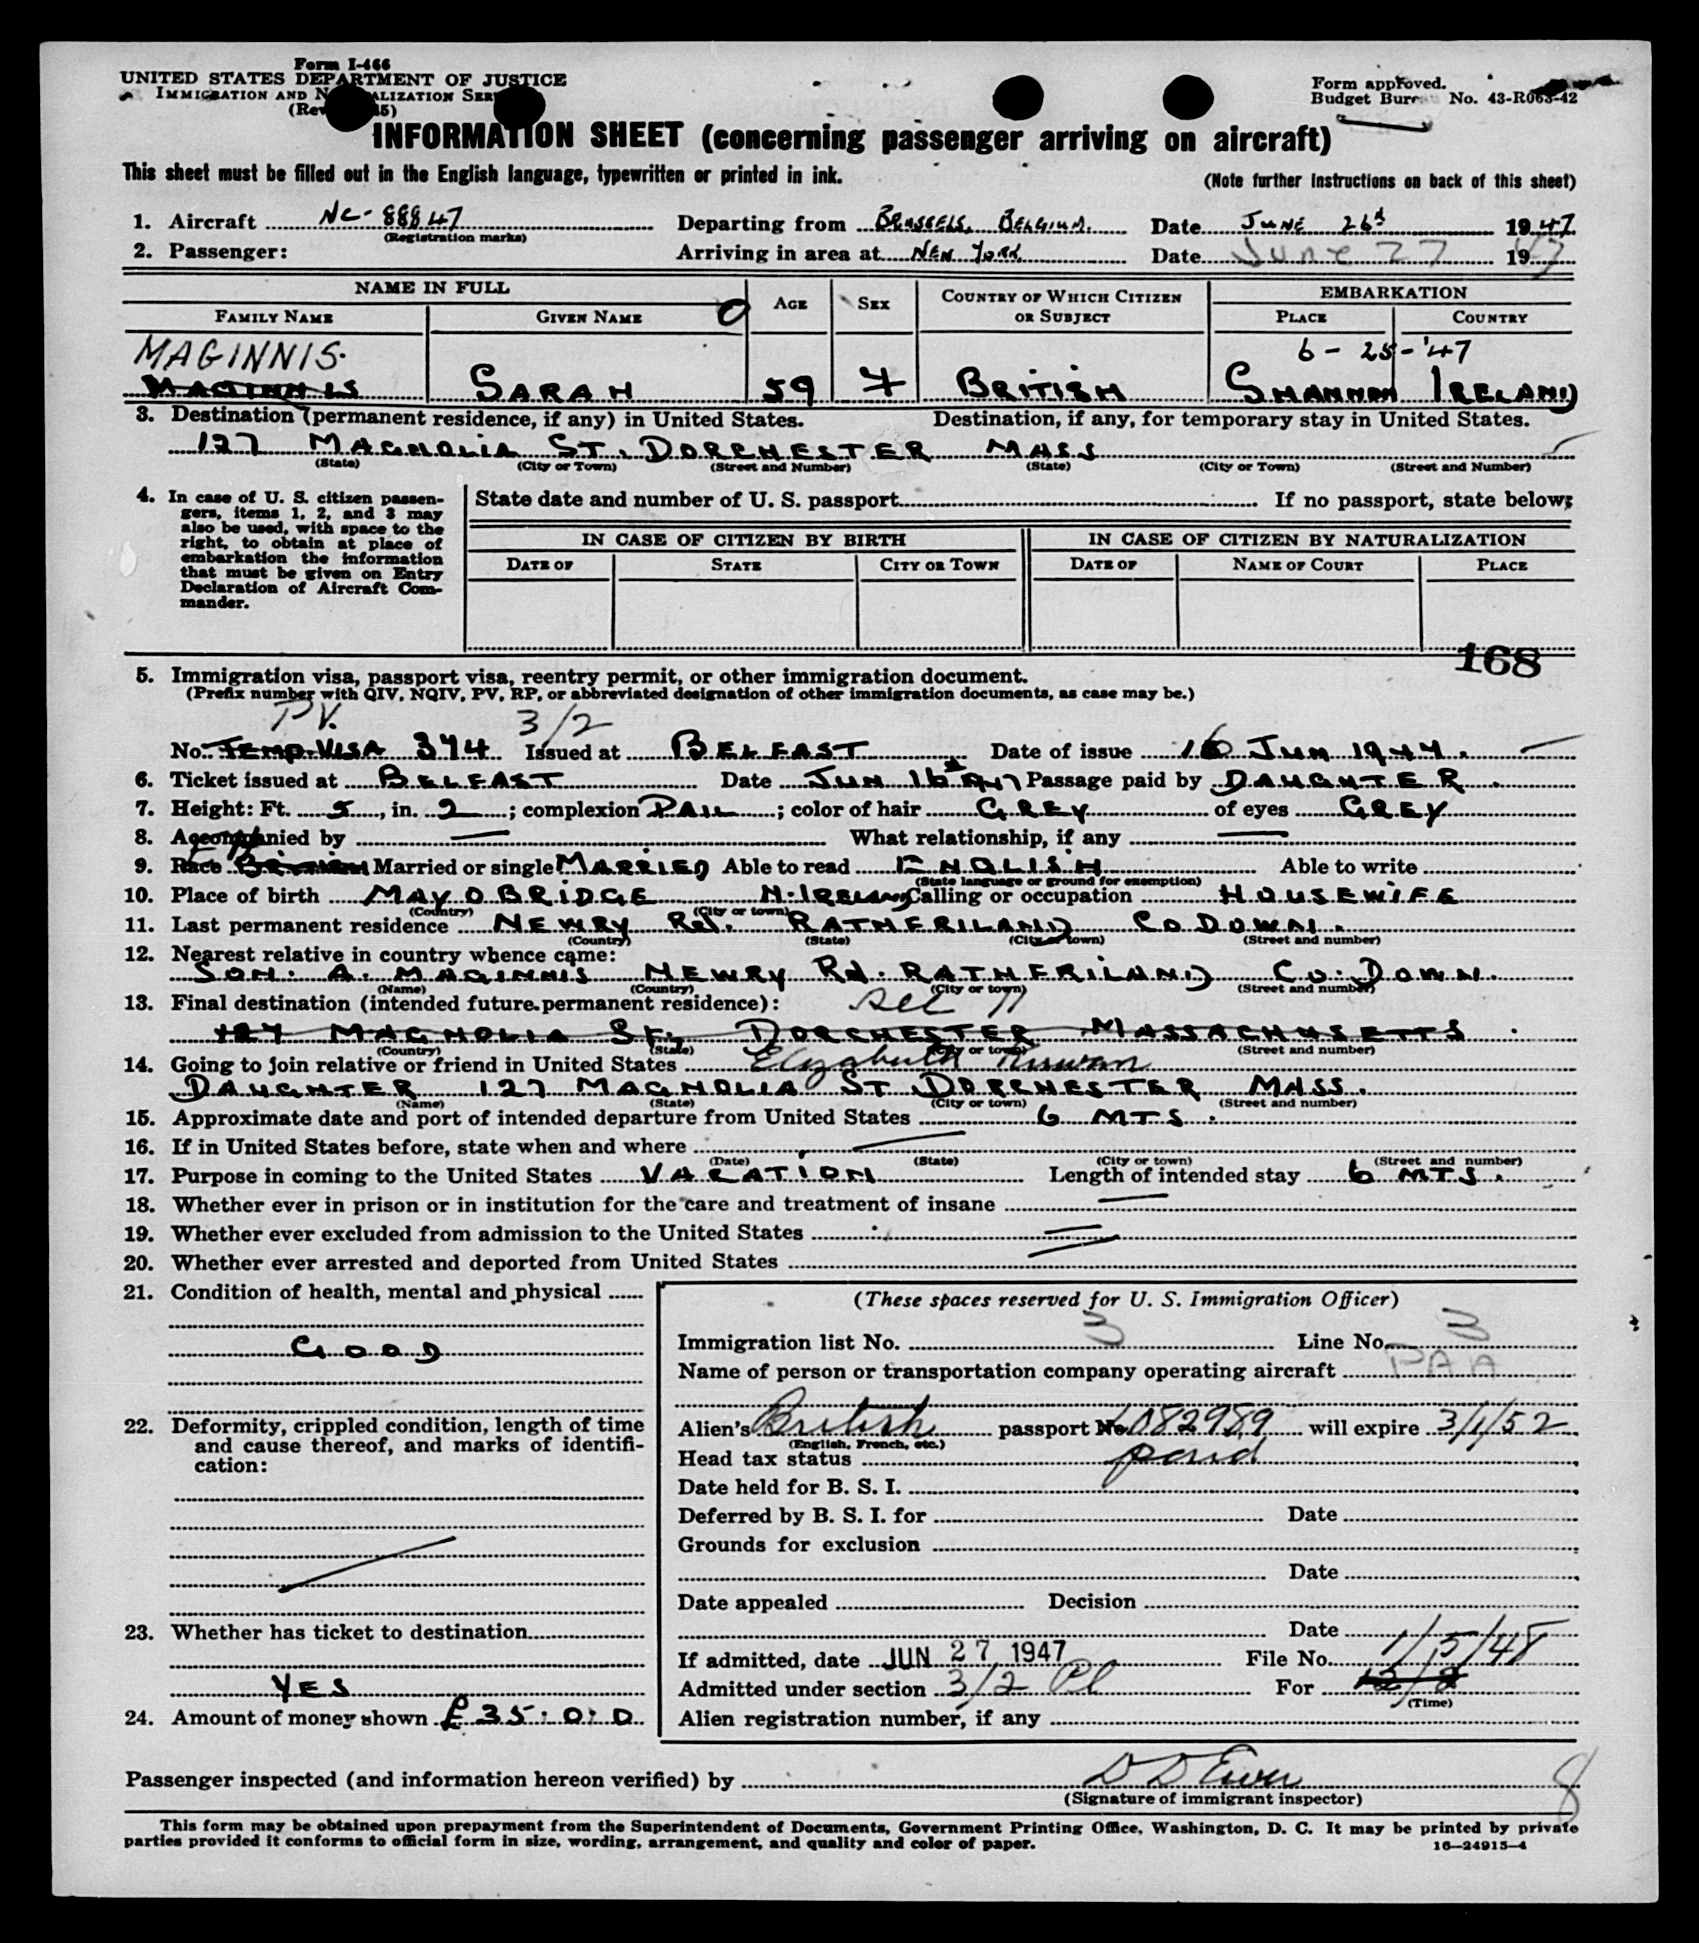 Form I-466
UNITED STATES DEPARTMENT OF JUSTICE
IMMIGRATION AND N ALIZATION SER
(Rev 5)
Form approved.
Budget Bureau No. 43-R063-42
INFORMATION SHEET (concerning passenger arriving on aircraft)
This sheet must be filled out in the English language, typewritten or printed in ink.
(Note further instructions on back of this sheet)
1. Aircraft NC-88847 Departing from BRUSSELS, BELGIUM. Date JUNE 26 1947
(Registration marks)
2. Passenger: Arriving in area at NEW YORK Date June 27 1947
NAME IN FULL AGE SEX COUNTRY OF WHICH CITIZEN OR SUBJECT EMBARKATION
FAMILY NAME GIVEN NAME O PLACE COUNTRY
MAGINNIS. 6-25-'47
MAGINNIS SARAH 59 F BRITISH SHANNON IRELAND
3. Destination (permanent residence, if any) in United States. Destination, if any, for temporary stay in United States.
127 MAGNOLIA ST. DORCHESTER MASS
(State) (City or Town) (Street and Number) (State) (City or Town) (Street and Number)
4. In case of U. S. citizen passengers, items 1, 2, and 3 may also be used, with space to the right, to obtain at place of embarkation the information that must be given on Entry Declaration of Aircraft Commander.
State date and number of U. S. passport If no passport, state below:
IN CASE OF CITIZEN BY BIRTH IN CASE OF CITIZEN BY NATURALIZATION
DATE OF STATE CITY OR TOWN DATE OF NAME OF COURT PLACE
168
5. Immigration visa, passport visa, reentry permit, or other immigration document.
(Prefix number with QIV, NQIV, PV, RP, or abbreviated designation of other immigration documents, as case may be.)
PV. 3/2
No. TEMP. VISA 394 Issued at BELFAST Date of issue 16 JUN 1947.
6. Ticket issued at BELFAST Date JUN 16 1947 Passage paid by DAUGHTER.
7. Height: Ft. 5, in. 2; complexion PAIL; color of hair GREY of eyes GREY
8. Accompanied by — What relationship, if any —
9. Race BRITISH Married or single MARRIED Able to read ENGLISH Able to write
(State language or ground for exemption)
10. Place of birth MAYOBRIDGE N. IRELAND Calling or occupation HOUSEWIFE
(Country) (City or town)
11. Last permanent residence NEWRY Rd. RATHFRILAND CO DOWN.
(Country) (State) (City or town) (Street and number)
12. Nearest relative in country whence came:
SON. A. MAGINNIS NEWRY Rd. RATHFRILAND CO. DOWN.
(Name) (Country) (City or town) (Street and number)
13. Final destination (intended future permanent residence): See 11
127 MAGNOLIA ST, DORCHESTER MASSACHUSETTS.
(Country) (State) (City or town) (Street and number)
14. Going to join relative or friend in United States Elizabeth
DAUGHTER 127 MAGNOLIA ST DORCHESTER MASS.
(Name) (State) (City or town) (Street and number)
15. Approximate date and port of intended departure from United States 6 MTS.
16. If in United States before, state when and where —
(Date) (State) (City or town) (Street and number)
17. Purpose in coming to the United States VACATION Length of intended stay 6 MTS.
18. Whether ever in prison or in institution for the care and treatment of insane —
19. Whether ever excluded from admission to the United States —
20. Whether ever arrested and deported from United States —
21. Condition of health, mental and physical
GOOD
22. Deformity, crippled condition, length of time and cause thereof, and marks of identification:
23. Whether has ticket to destination
YES
24. Amount of money shown £35.0.0
(These spaces reserved for U. S. Immigration Officer)
Immigration list No. 3 Line No. 3
Name of person or transportation company operating aircraft PAA
Alien's British passport No. L082989 will expire 3/1/52
(English, French, etc.)
Head tax status paid
Date held for B. S. I.
Deferred by B. S. I. for Date
Grounds for exclusion
Date
Date appealed Decision
Date
If admitted, date JUN 27 1947 File No. 1/5/48
Admitted under section 3/2 Pl For
(Time)
Alien registration number, if any
Passenger inspected (and information hereon verified) by
(Signature of immigrant inspector)
8
This form may be obtained upon prepayment from the Superintendent of Documents, Government Printing Office, Washington, D. C. It may be printed by private
parties provided it conforms to official form in size, wording, arrangement, and quality and color of paper.
16—24915-4